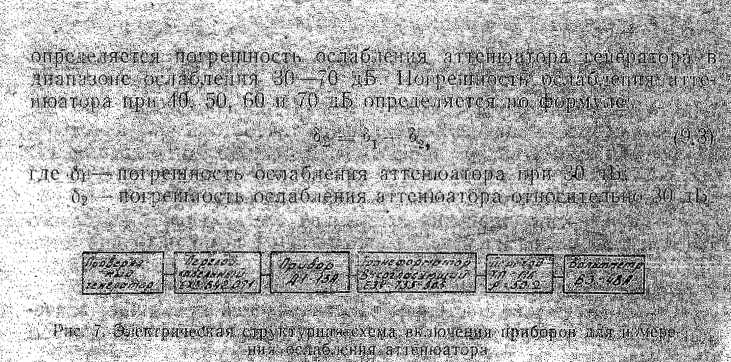 определяется погрешность ослабления аттенюатора генератора в
диапазоне ослабления 30—70 дБ. Погрешность ослабления атте-
нюатора при 40, 50, 60 и 70 дБ определяется по формуле
δ₂ = δ₁ — δ₂, (9.3)
где δ₁ — погрешность ослабления аттенюатора при 30 дБ;
δ₂ — погрешность ослабления аттенюатора относительно 30 дБ.
Проверяе-
мый
генератор
Переход
кабельный
Прибор
Д1-13А
Трансформатор
согласующий
Вольтметр
В3-48А
Рис. 7. Электрическая структурная схема включения приборов для измере-
ния ослабления аттенюатора